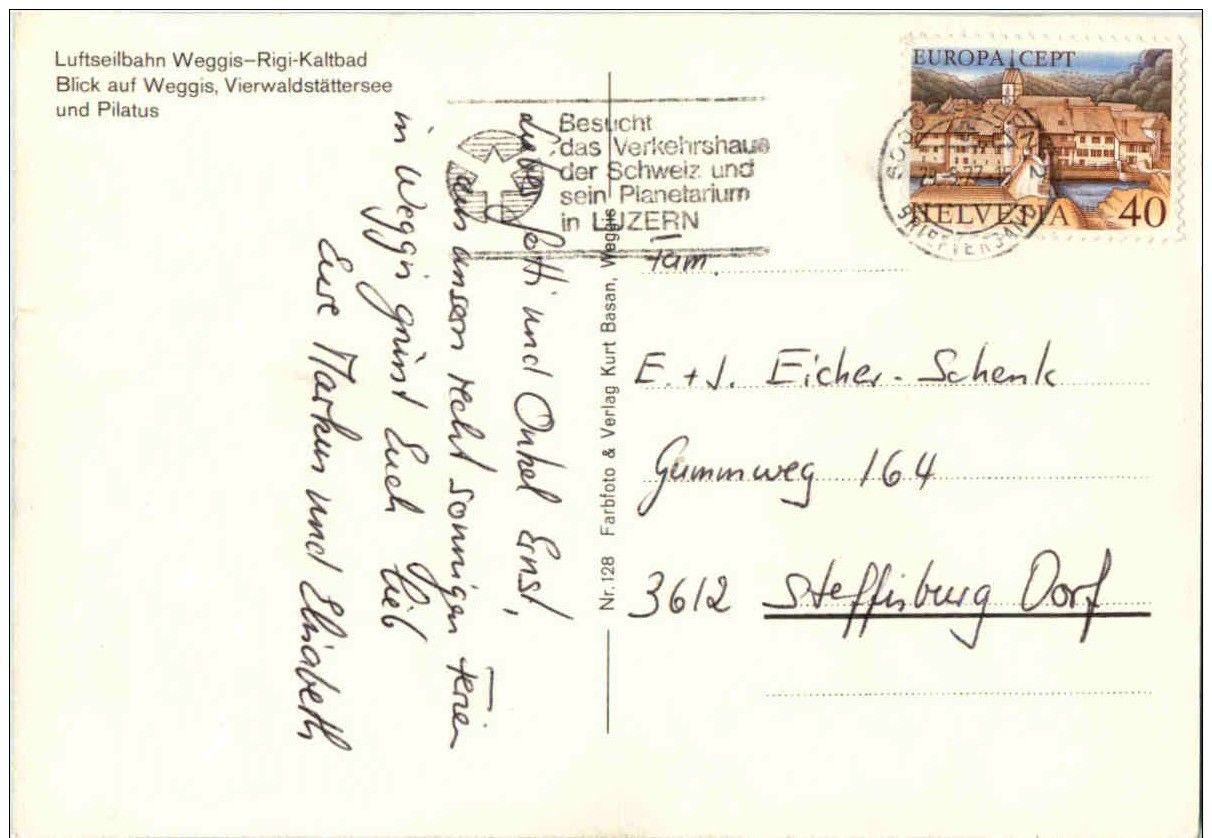 Luftseilbahn Weggis–Rigi-Kaltbad
Blick auf Weggis, Vierwaldstättersee
und Pilatus
Besucht
das Verkehrshaus
der Schweiz und
sein Planetarium
in LUZERN
EUROPA CEPT
HELVETIA 40
6000 LUZERN 2
BRIEFVERSAND
und Onkel Ernst,
aus unsern recht sonnigen Ferien
in Weggis grüsst Euch lieb
Eure Markus und Elisabeth
Nr. 128 Farbfoto & Verlag Kurt Basan, Weggis
Fam.
E. + J. Eicher-Schenk
Gummweg 164
3612 Steffisburg Dorf